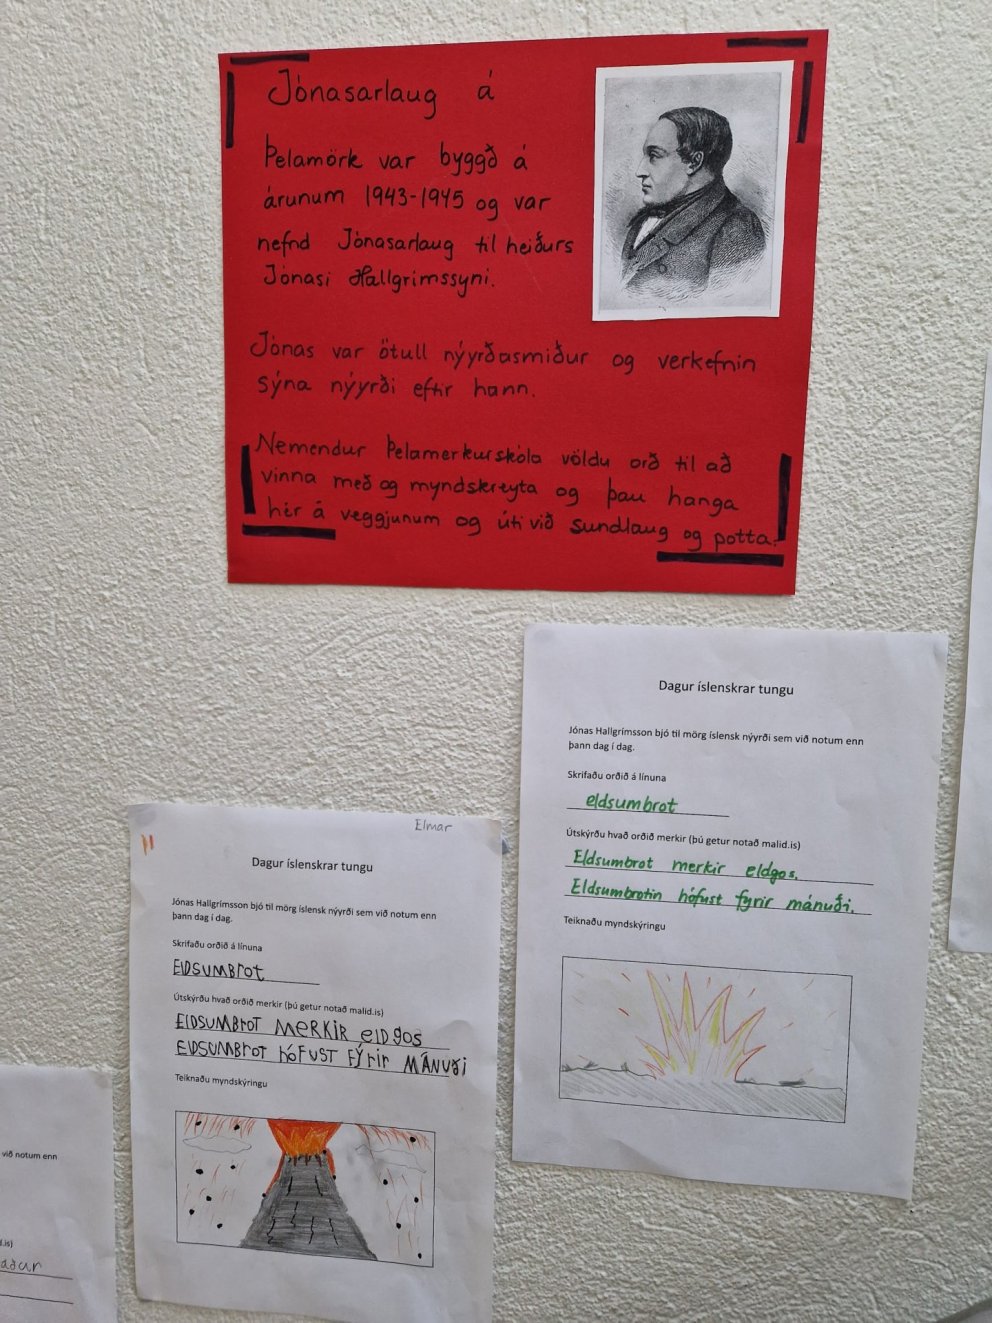 Jónasarlaug á
Þelamörk var byggð á
árunum 1943-1945 og var
nefnd Jónasarlaug til heiðurs
Jónasi Hallgrímssyni.
Jónas var ötull nýyrðasmiður og verkefnin
sýna nýyrði eftir hann.
Nemendur Þelamerkurskóla völdu orð til að
vinna með og myndskreyta og þau hanga
hér á veggjunum og úti við sundlaug og potta.
Dagur íslenskrar tungu
Jónas Hallgrímsson bjó til mörg íslensk nýyrði sem við notum enn
þann dag í dag.
Skrifaðu orðið á línuna
eldsumbrot
Útskýrðu hvað orðið merkir (þú getur notað malid.is)
Eldsumbrot merkir eldgos.
Eldsumbrotin hófust fyrir mánuði.
Teiknaðu myndskýringu
Elmar
Dagur íslenskrar tungu
Jónas Hallgrímsson bjó til mörg íslensk nýyrði sem við notum enn
þann dag í dag.
Skrifaðu orðið á línuna
ElDSUMBROT
Útskýrðu hvað orðið merkir (þú getur notað malid.is)
ElDSUMBROT MERKIR ElDgos
ElDSUMBROT hóFUST FÝrir MÁNUði
Teiknaðu myndskýringu
við notum enn
d.is)
aður